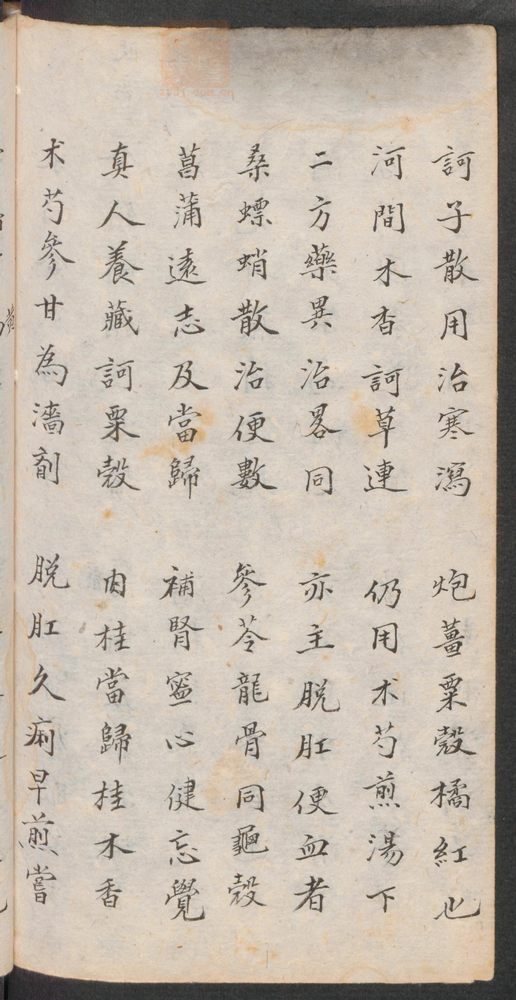 訶子散用治寒瀉　炮薑粟殼橘紅也
河間木香訶草連　仍用朮芍煎湯下
二方藥異治畧同　亦主脱肛便血者
桑螵蛸散治便數　參苓龍骨同龜殼
菖蒲遠志及當歸　補腎寍心健忘覺
真人養藏訶粟殼　肉桂當歸桂木香
朮芍參甘為濇劑　脱肛久痢早煎嘗